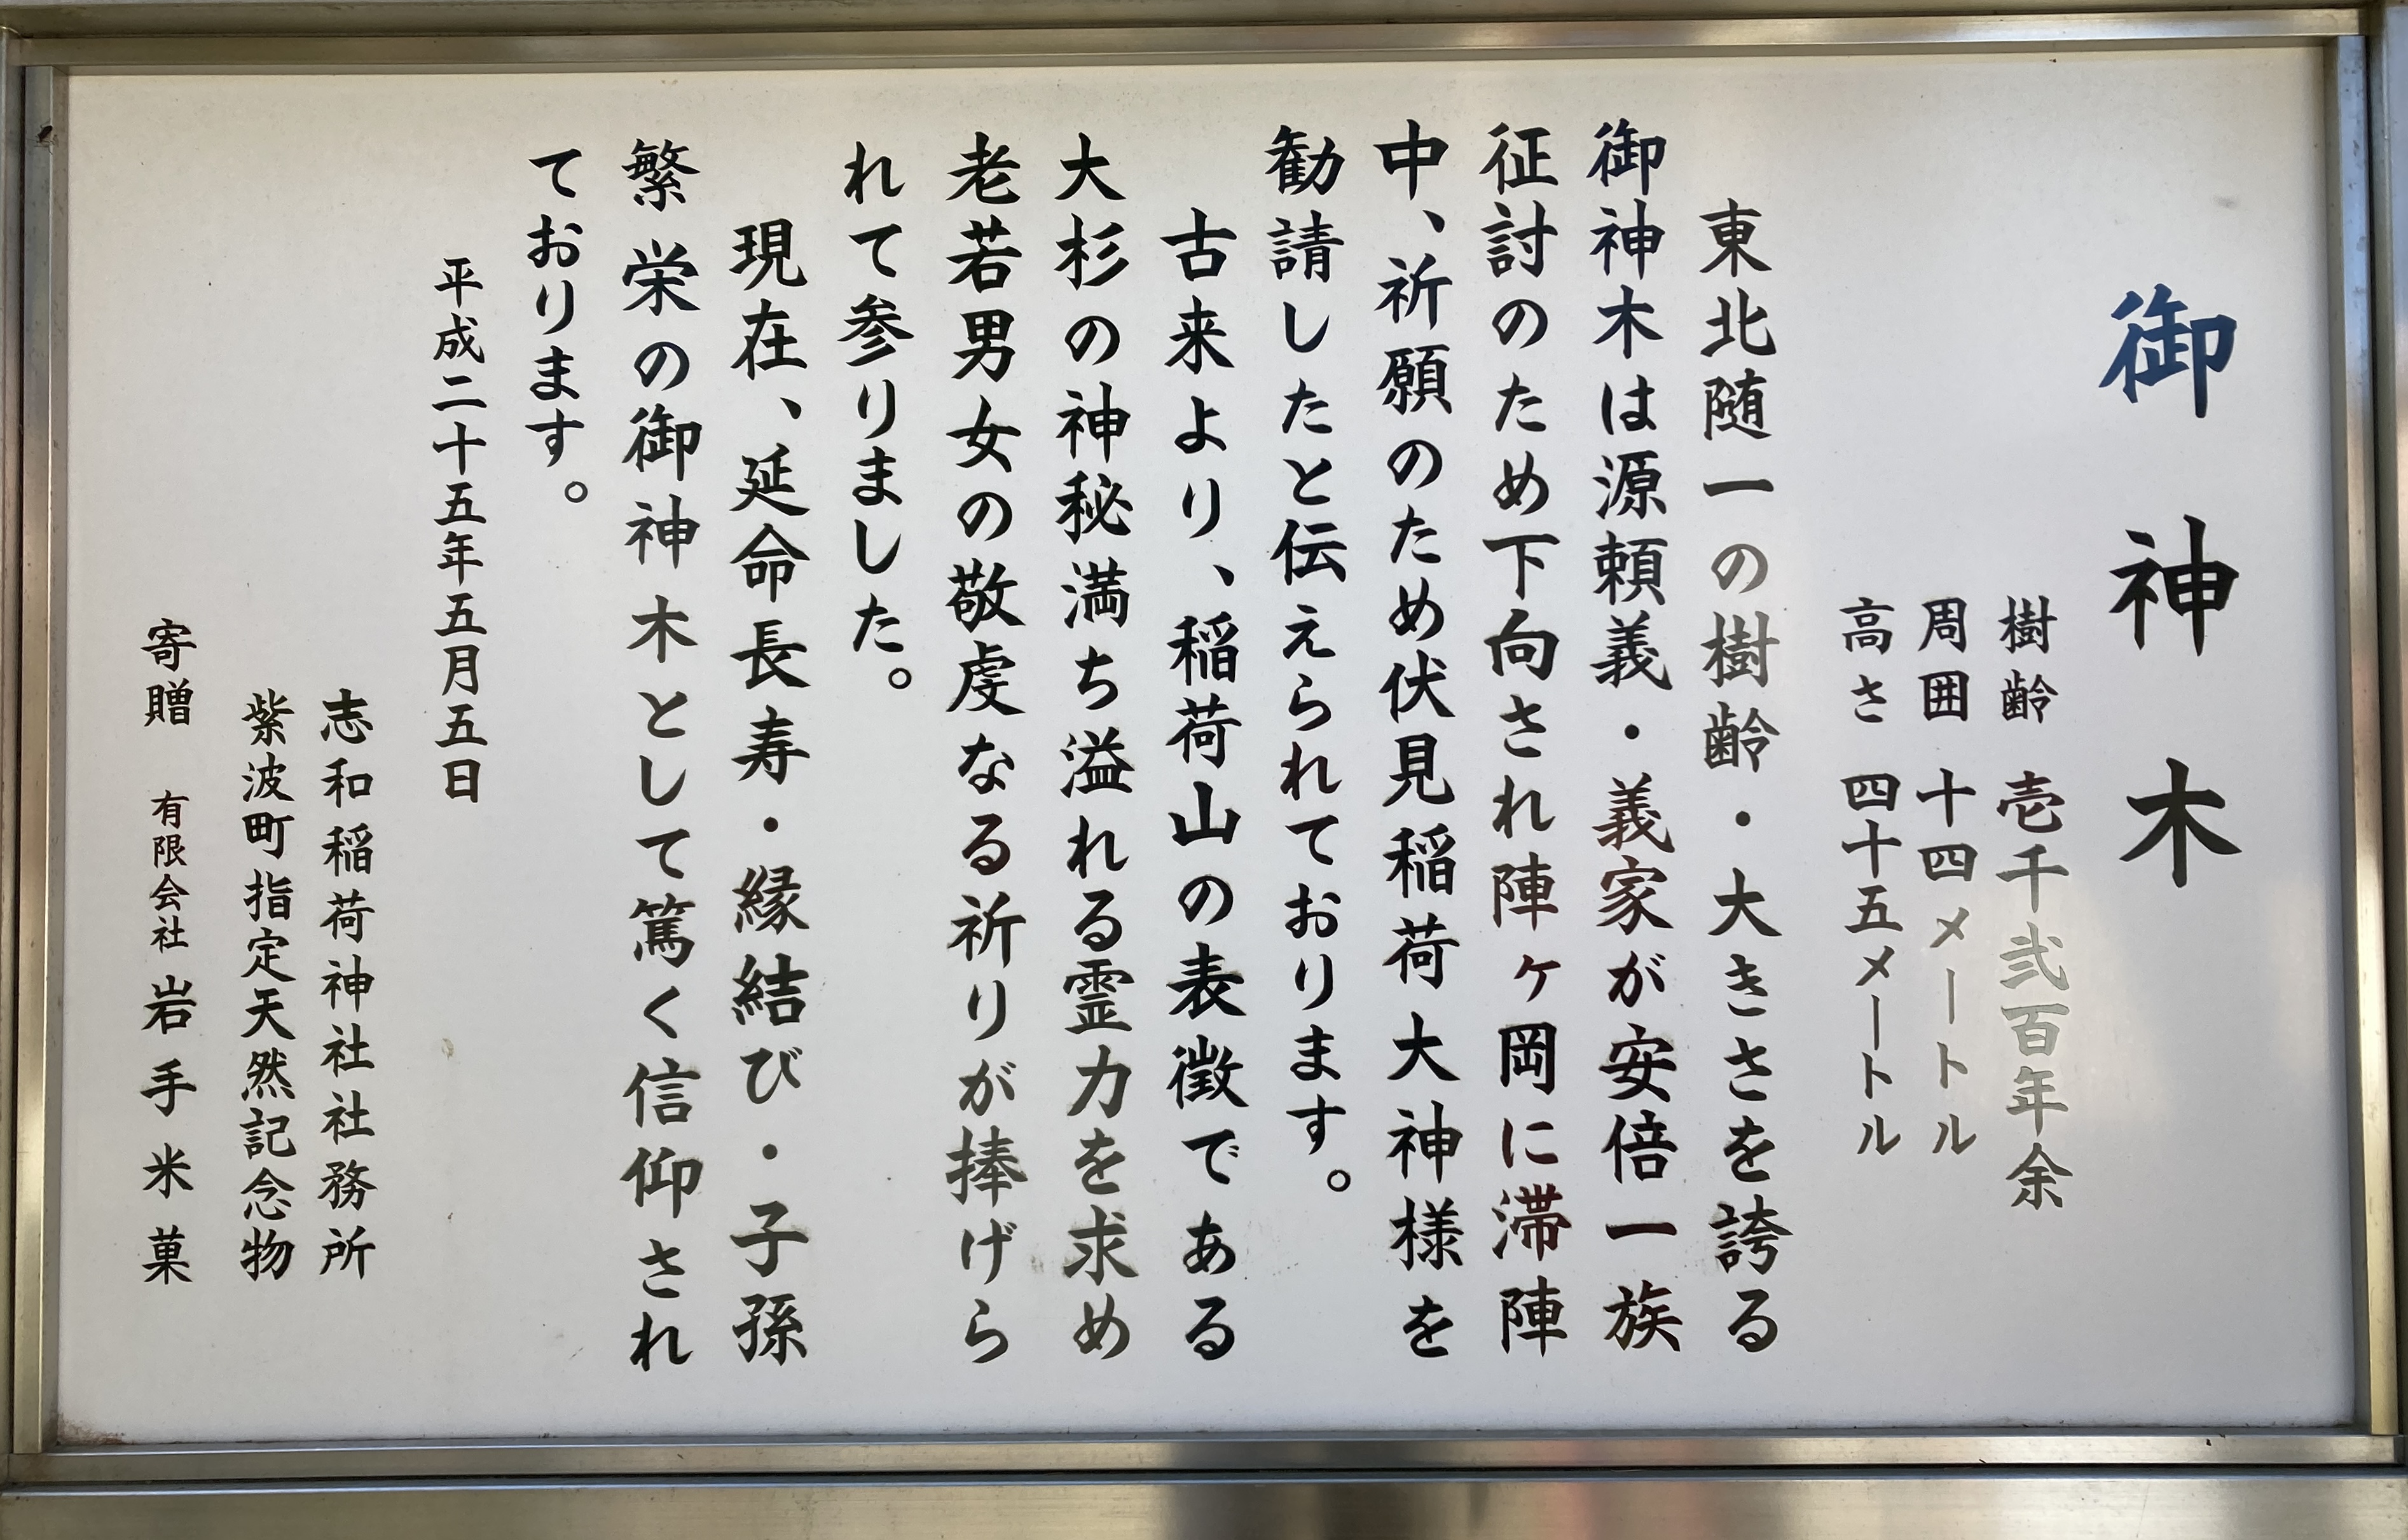 御神木
樹齢 壱千弐百年余
周囲 十四メートル
高さ 四十五メートル
東北随一の樹齢・大きさを誇る
御神木は源頼義・義家が安倍一族
征討のため下向され陣ヶ岡に滞陣
中、祈願のため伏見稲荷大神様を
勧請したと伝えられております。
古来より、稲荷山の表徴である
大杉の神秘満ち溢れる霊力を求め
老若男女の敬虔なる祈りが捧げら
れて参りました。
現在、延命長寿・縁結び・子孫
繁栄の御神木として篤く信仰され
ております。
平成二十五年五月五日
志和稲荷神社社務所
紫波町指定天然記念物
寄贈 有限会社 岩手米菓